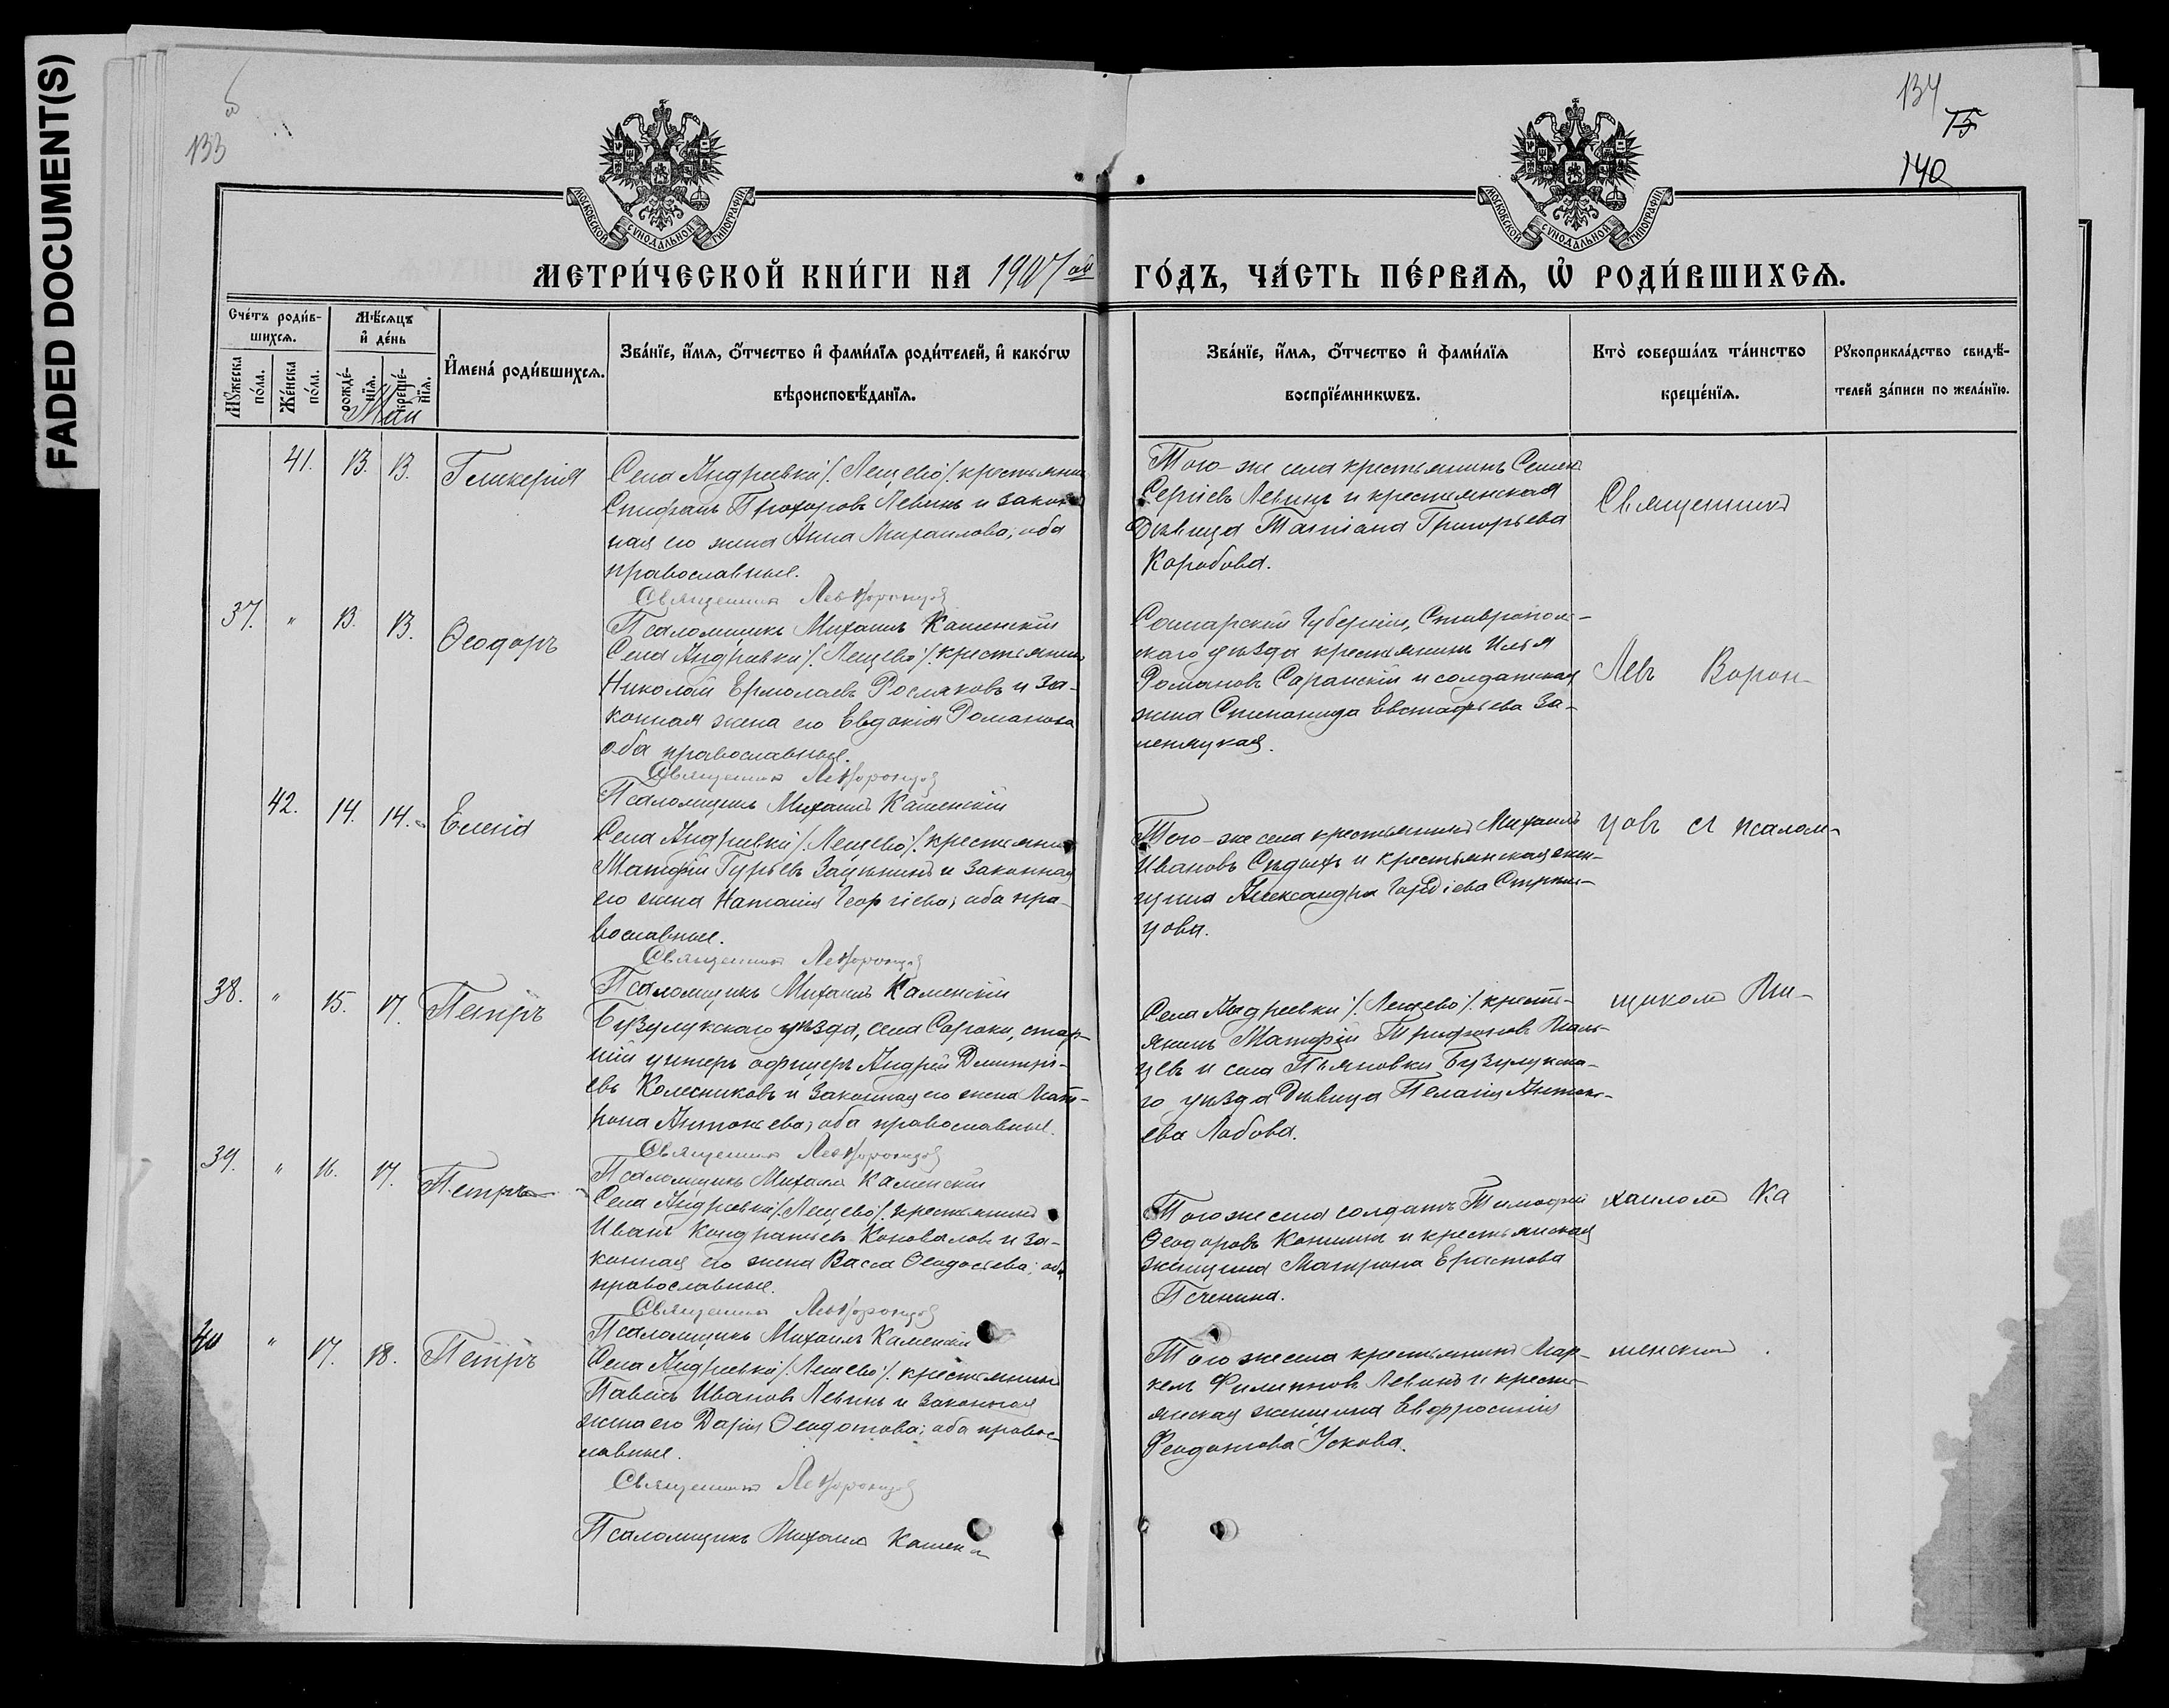 FADED DOCUMENT(S)
133
134
15
140
МОСКОВСКОЙ СѴНОДАЛЬНОЙ ТИПОГРАФІИ.
МОСКОВСКОЙ СѴНОДАЛЬНОЙ ТИПОГРАФІИ.
МЕТРИ́ЧЕСКОЙ КНИ́ГИ НА 1907 ой ГО́ДЪ, ЧА́СТЬ ПЕ́РВАѦ, Ѡ҆ РОДИ́ВШИХСѦ.
Сче́тъ роди́в-
шихсѧ.
Мꙋ́жеска по́ла.
Же́нска по́ла.
Мѣ́сѧцъ
и҆ де́нь
рожде́-
нїѧ.
креще́-
нїѧ.
И҆мена́ роди́вшихсѧ.
Зва́нїе, и҆́мѧ, ѻ҆́тчество и҆ фами́лїѧ роди́телей, и҆ како́гѡ
вѣроисповѣ́данїѧ.
Зва́нїе, и҆́мѧ, ѻ҆́тчество и҆ фами́лїѧ
воспрїе́мникѡвъ.
Кто̀ соверша́лъ та́инство
креще́нїѧ.
Рꙋкоприкла́дство свидѣ́-
телей за́писи по жела́нїю.
Май
41. 13. 13. Гликерія
Села Андреевки /. Лещево /. крестьянин
Стефанъ Прохоровъ Левинъ и закон
ная его жена Анна Михаилова; оба
православные.
Священникъ Лев Воронцов
Псаломщикъ Михаилъ Каменскій
Того-же села крестьянинъ Семен
Сергіевъ Левинъ и крестьянская
Дѣвица Татіана Григорьева
Коробова.
Священникъ
37. " 13. 13. Ѳеодоръ
Села Андреевки /. Лещево /. крестьянин
Николай Ермолаевъ Росляковъ и за-
конная жена его Евдокія Романова
оба православные.
Священникъ Лев Воронцов
Псаломщикъ Михаилъ Каменскій
Самарской Губерніи, Ставрополь-
скаго уѣзда крестьянинъ Илья
Романовъ Саранскій и солдатская
жена Степанида Евстафьева За-
Левъ Ворон-
42. 14. 14. Елена
Села Андреевки /. Лещево /. крестьянин
Матфей Гурьевъ и законная
его жена Наталія Георгіева; оба пра-
вославные.
Священникъ Лев Воронцов
Псаломщикъ Михаилъ Каменскій
Того-же села крестьянинъ Михаилъ
Ивановъ Сѣдыхъ и крестьянская жен-
щина Александра Гордіева Стрѣль-
цова.
цовъ съ псалом-
38. " 15. 17. Петръ
Бузулукскаго уѣзда, села Сороки, стар-
шій унтеръ офицеръ Андрей Дмитрі-
евъ Колесниковъ и законная его жена Мат-
рона Антоньева; оба православные.
Священникъ Лев Воронцов
Псаломщикъ Михаилъ Каменскій
Села Андреевки /. Лещево /. кресть-
янинъ Матфей Трифоновъ Маль-
цевъ и села Пьяновки Бузулукска-
го уѣзда Дѣвица Пелагія Антонь-
ева Лобова.
щикомъ Ми-
39. " 16. 17. Петръ
Села Андреевки /. Лещево /. крестьянинъ
Иванъ Кондратьевъ Коноваловъ и за-
конная его жена Васса Ѳеодосіева; оба
православные.
Священникъ Лев Воронцов
Псаломщикъ Михаилъ Каменскій
Того же села солдатъ Тимофей
Ѳеодоровъ Коншинъ и крестьянская
женщина Матрона Ерастова
хаиломъ Ка
40 " 17. 18. Петръ
Села Андреевки /. Лещево /. крестьянинъ
Павелъ Ивановъ Левинъ и законная
жена его Дарія Ѳеодотова; оба правос-
лавные.
Священникъ Лев Воронцов
Псаломщикъ Михаилъ Каменс
Того же села крестьянинъ Мар-
келъ Филипповъ Левинъ и кресть-
янская женщина Евфросинія
Феодотова Ускова.
менскимъ.